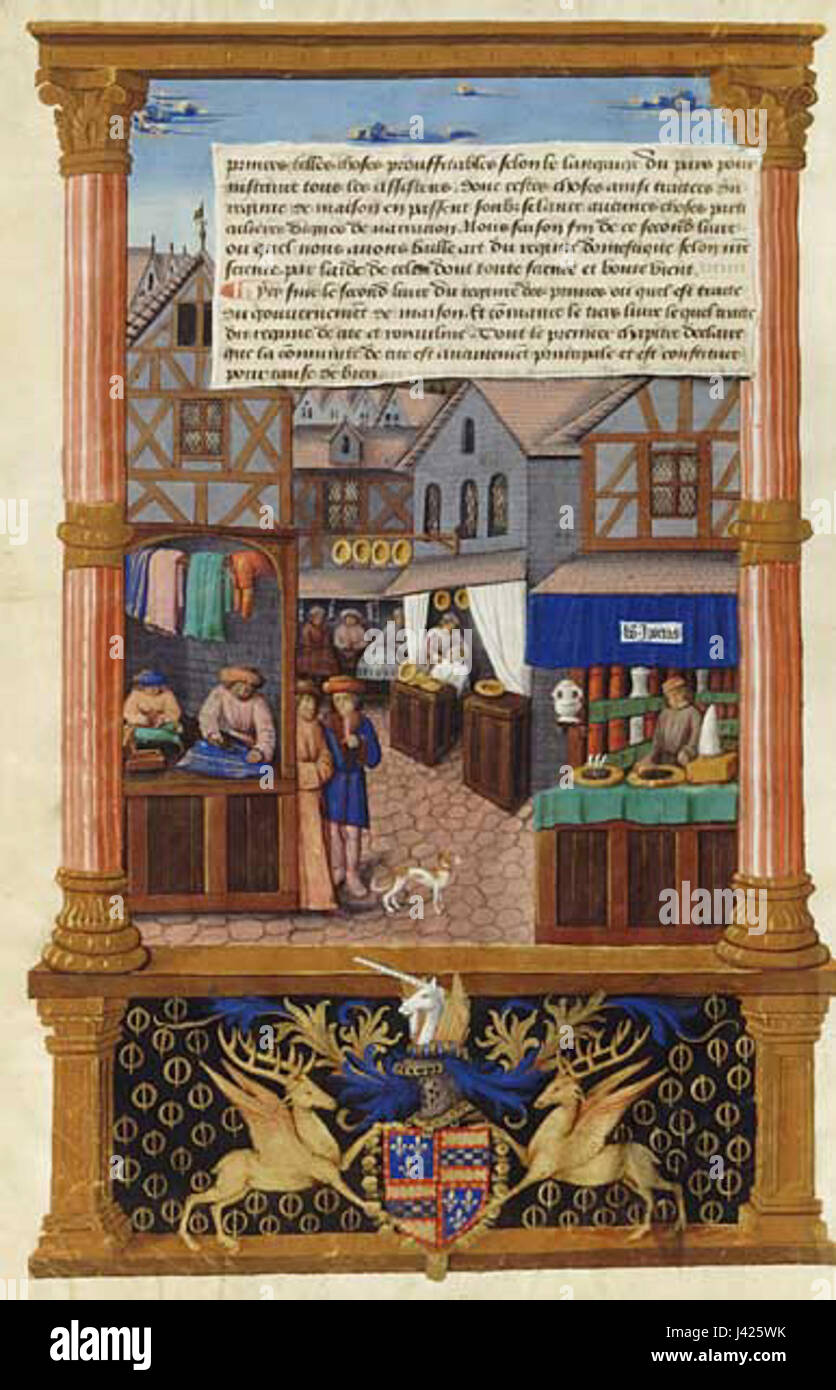 princes telles choses prouffitables selon le langaige du pays pour
instruire tous les assistens. Donc cestes choses ainsi traictees du
regime de maison en passent soubz silence aucunes choses parti
culieres dignes de narration. Nous faison fin de ce second livre
ou quel nous avons baille art du regime domestique selon nre
science par laide de celui dont toute science et bonte vient.
Cy finist le second livre du regime des princes ou quel est traicte
du gouvernement de maison. Et cōmance le tiers livre le quel traicte
du regime de cite et royaulme. Dont le premier chapitre declaire
que la cōmunite de cite est aucunement principale et est constituee
pour cause de bien.
alamy
a
alamy stock photo
J425WK
www.alamy.com